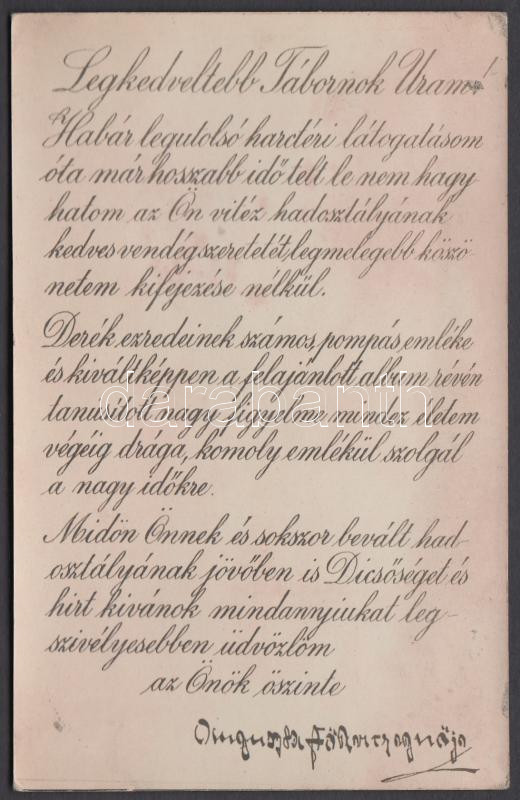 Legkedveltebb Tábornok Uram!
Habár legutolsó harctéri látogatásom
óta már hosszabb idő telt le nem hagy
hatom az Ön vitéz hadosztályának
kedves vendégszeretetét, legmelegebb köszö
netem kifejezése nélkül.
Derék ezredeinek számos, pompás, emléke
és kiváliképpen a felajánlott album révén
tanusított nagy figyelme, mindez életem
végéig drága, komoly emlékül szolgál
a nagy időkre.
Midön Önnek és sokszor bevált had-
osztályának jövőben is Dicsőséget és
hirt kivánok mindannyiukat leg-
szivélyesebben üdvözlöm
az Önök öszinte
darabanth